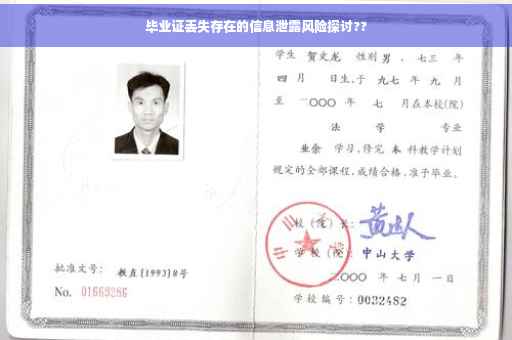 毕业证丢失存在的信息泄露风险探讨??
学生 贺文龙 性别 男，七三 年
四 月 日生，于 九七 年 九 月
至 二〇〇〇 年 七 月在本校(院)
法 学 专业
业余 学习，修完 本 科教学计划
规定的全部课程，成绩合格，准予毕业。
校（院）长：
学校（院）：中山大学
二〇〇〇 年 七 月 一 日
批准文号：教直[1993]8号
No. 01669286
学校编号：0032482